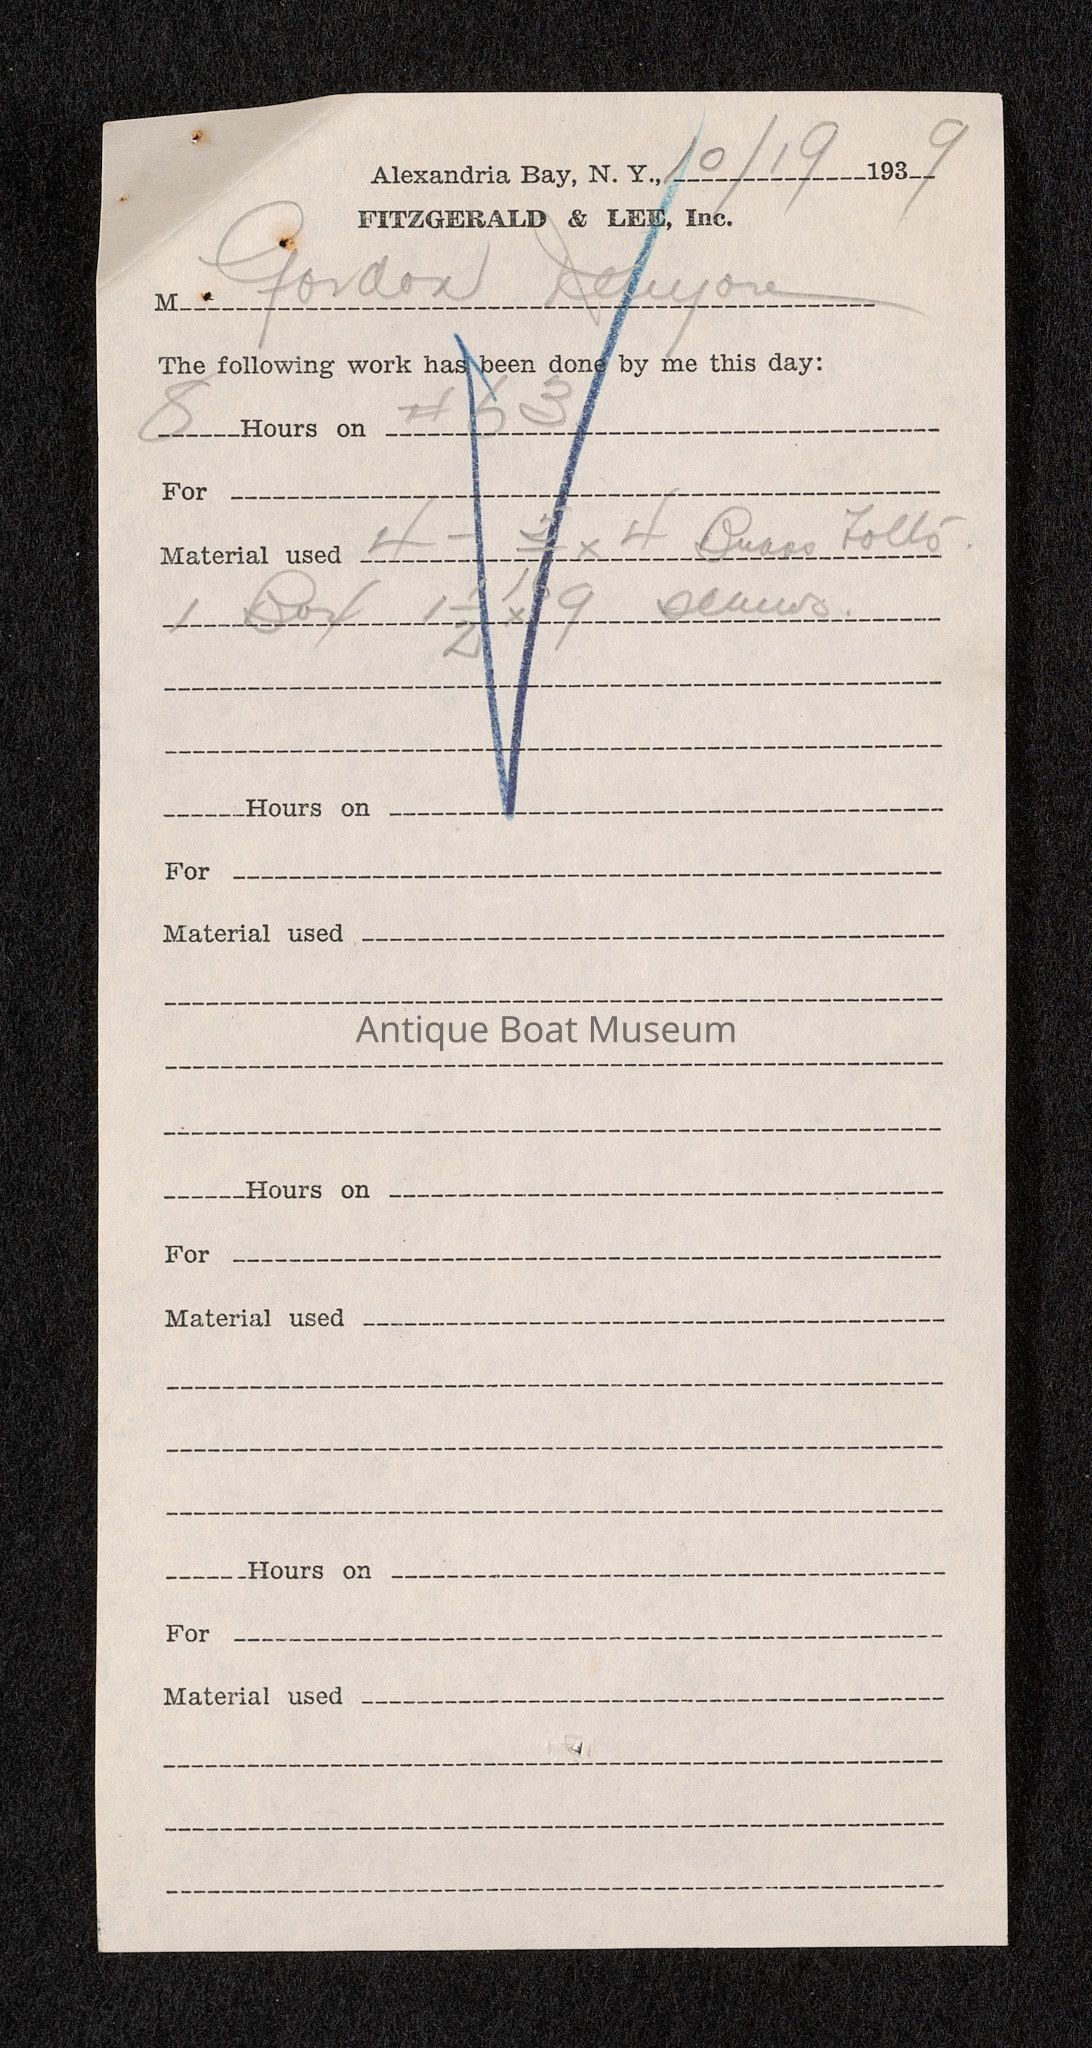 Alexandria Bay, N. Y., 10/19 1939
FITZGERALD & LEE, Inc.
M Gordon
The following work has been done by me this day:
8 Hours on #63
For
Material used 4 - x 4 Brass bolts.
1 Box 1 1/2 x 9 screws.
Hours on
For
Material used
Antique Boat Museum
Hours on
For
Material used
Hours on
For
Material used